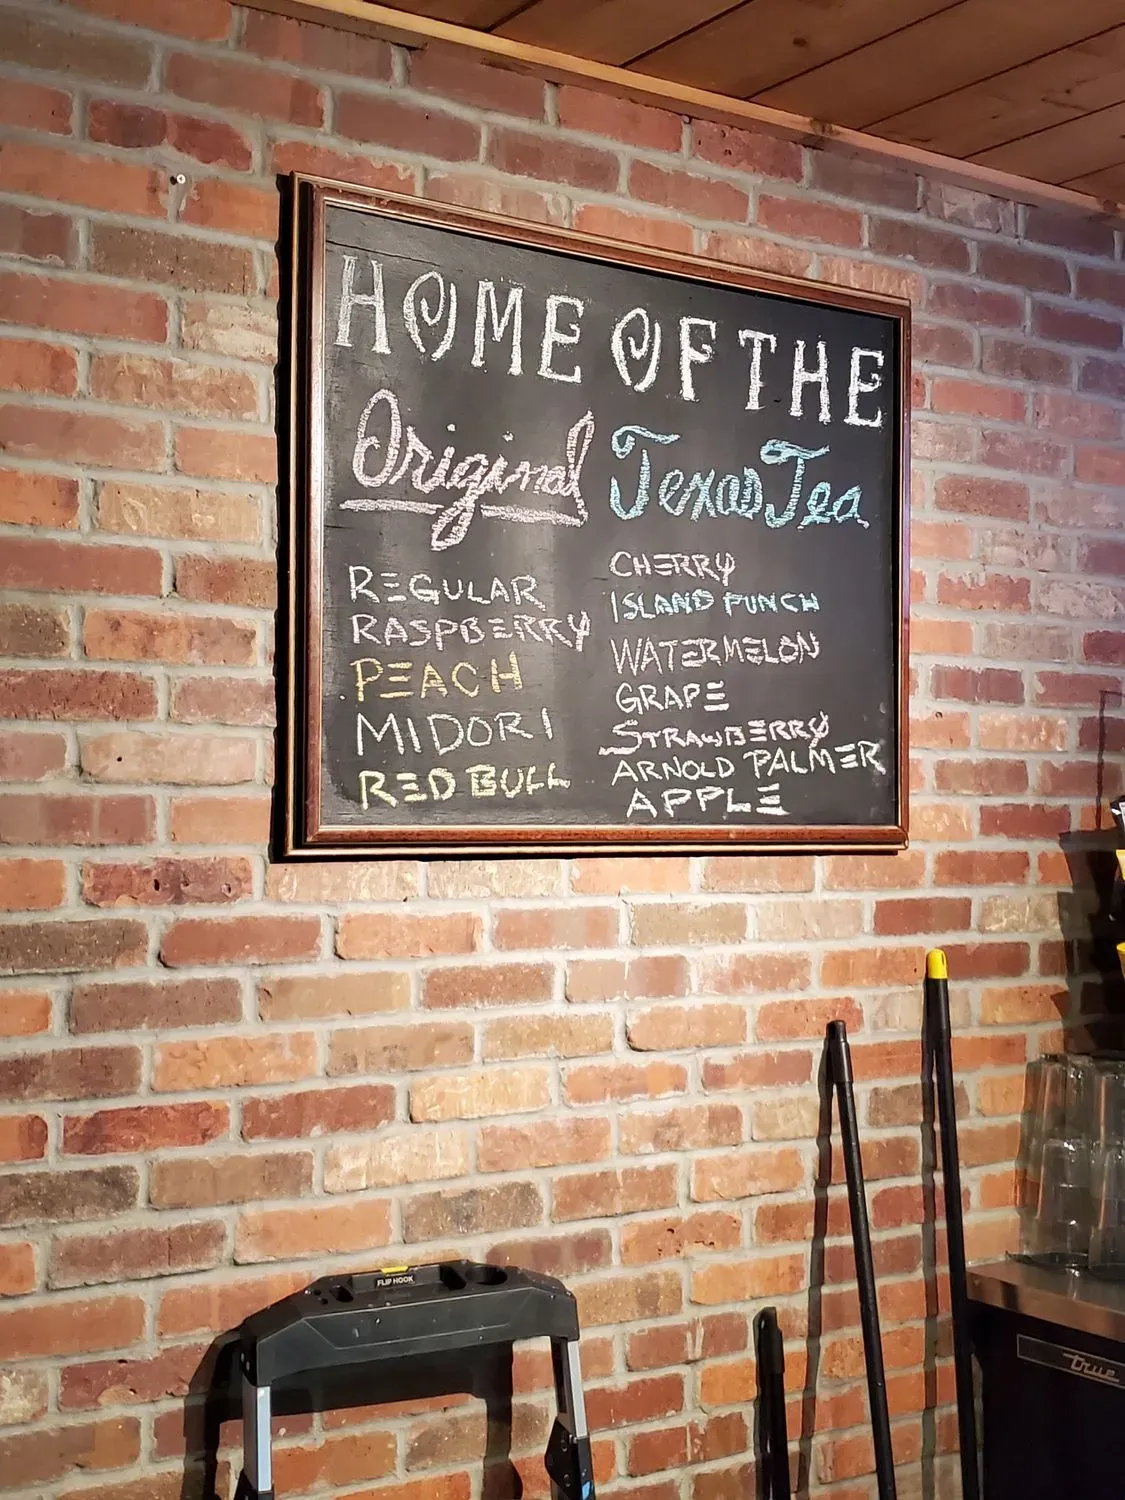 HOME OF THE
Original Texas Tea
REGULAR
RASPBERRY
PEACH
MIDORI
RED BULL
CHERRY
ISLAND PUNCH
WATERMELON
GRAPE
STRAWBERRY
ARNOLD PALMER
APPLE
FLIP HOOK
True